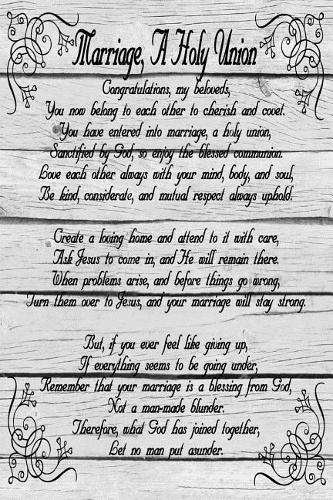 Marriage, A Holy Union
Congratulations, my beloveds,
You now belong to each other to cherish and covet.
You have entered into marriage, a holy union,
Sanctified by God, so enjoy the blessed communion.
Love each other always with your mind, body, and soul,
Be kind, considerate, and mutual respect always uphold.
Create a loving home and attend to it with care,
Ask Jesus to come in, and He will remain there.
When problems arise, and before things go wrong,
Turn them over to Jesus, and your marriage will stay strong.
But, if you ever feel like giving up,
If everything seems to be going under,
Remember that your marriage is a blessing from God,
Not a man-made blunder.
Therefore, what God has joined together,
Let no man put asunder.